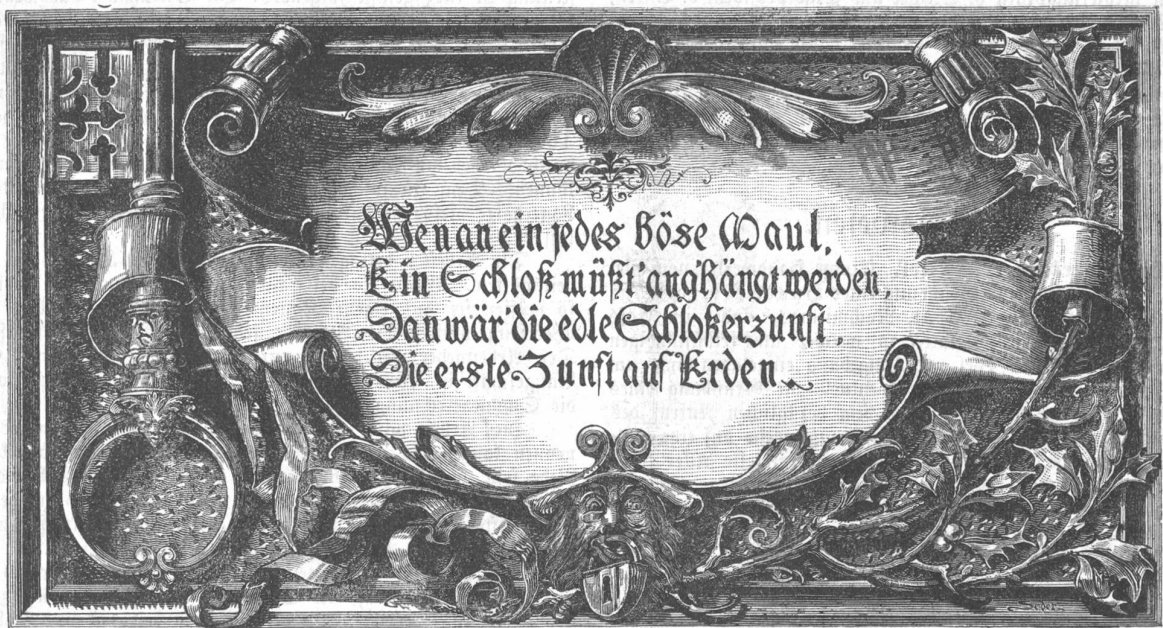 Wen an ein jedes böse Maul,
Ein Schloß müßt' ang'hängt werden,
Dan̄ wär' die edle Schloßerzunft,
Die erste Zunft auf Erden.